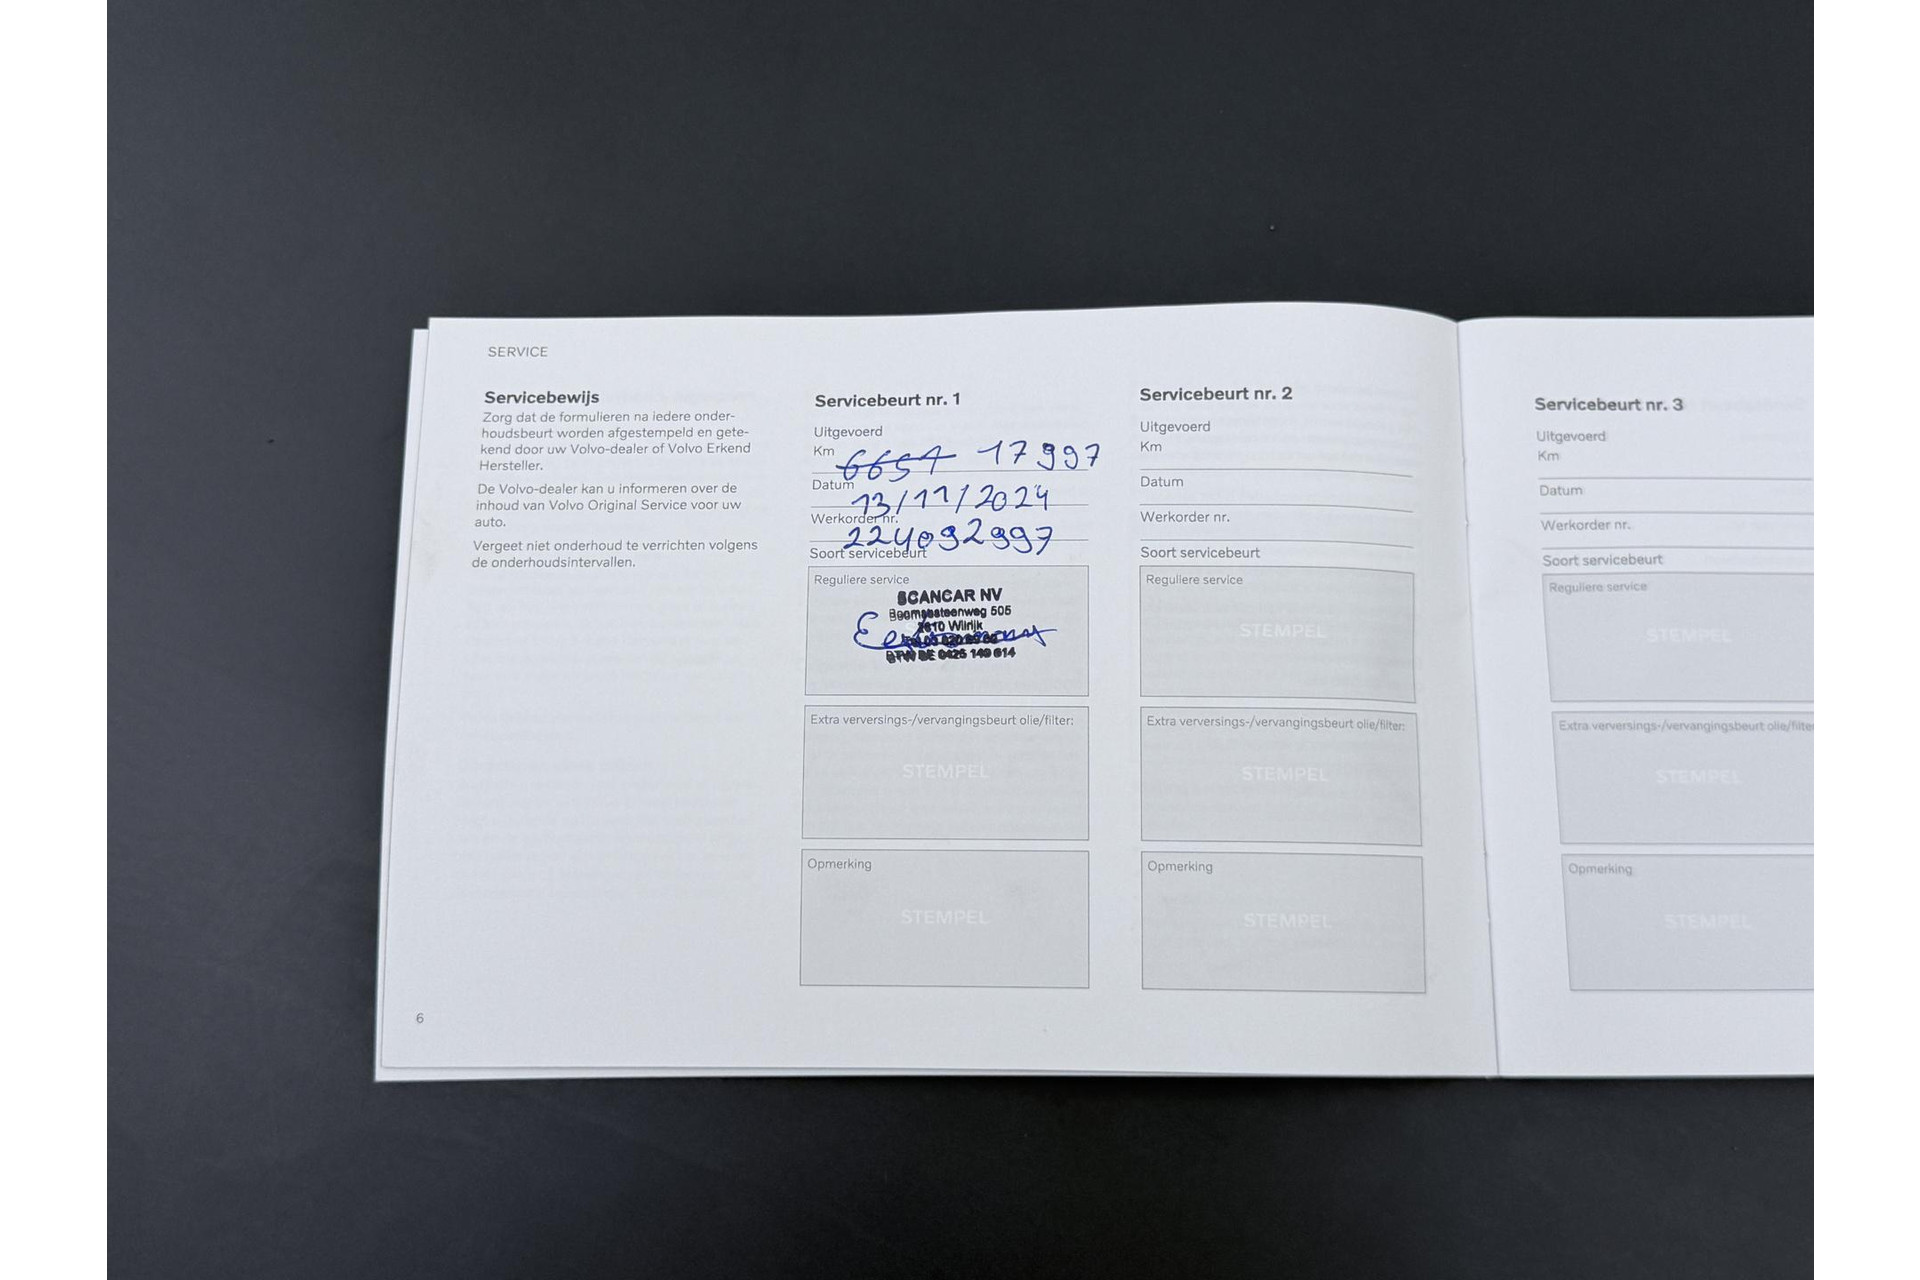 SERVICE
Servicebewijs
Zorg dat de formulieren na iedere onder-
houdsbeurt worden afgestempeld en gete-
kend door uw Volvo-dealer of Volvo Erkend
Hersteller.
De Volvo-dealer kan u informeren over de
inhoud van Volvo Original Service voor uw
auto.
Vergeet niet onderhoud te verrichten volgens
de onderhoudsintervallen.
6
Servicebeurt nr. 1
Uitgevoerd
Km 17997
Datum 13/11/2024
Werkorder nr. 224092997
Soort servicebeurt
Reguliere service
SCANCAR NV
Boomsesteenweg 505
2610 Wilrijk
BTW BE 0425 149 614
Extra verversings-/vervangingsbeurt olie/filter:
STEMPEL
Opmerking
STEMPEL
Servicebeurt nr. 2
Uitgevoerd
Km
Datum
Werkorder nr.
Soort servicebeurt
Reguliere service
STEMPEL
Extra verversings-/vervangingsbeurt olie/filter:
STEMPEL
Opmerking
STEMPEL
Servicebeurt nr. 3
Uitgevoerd
Km
Datum
Werkorder nr.
Soort servicebeurt
Reguliere service
STEMPEL
Extra verversings-/vervangingsbeurt olie/filter
STEMPEL
Opmerking
STEMPEL